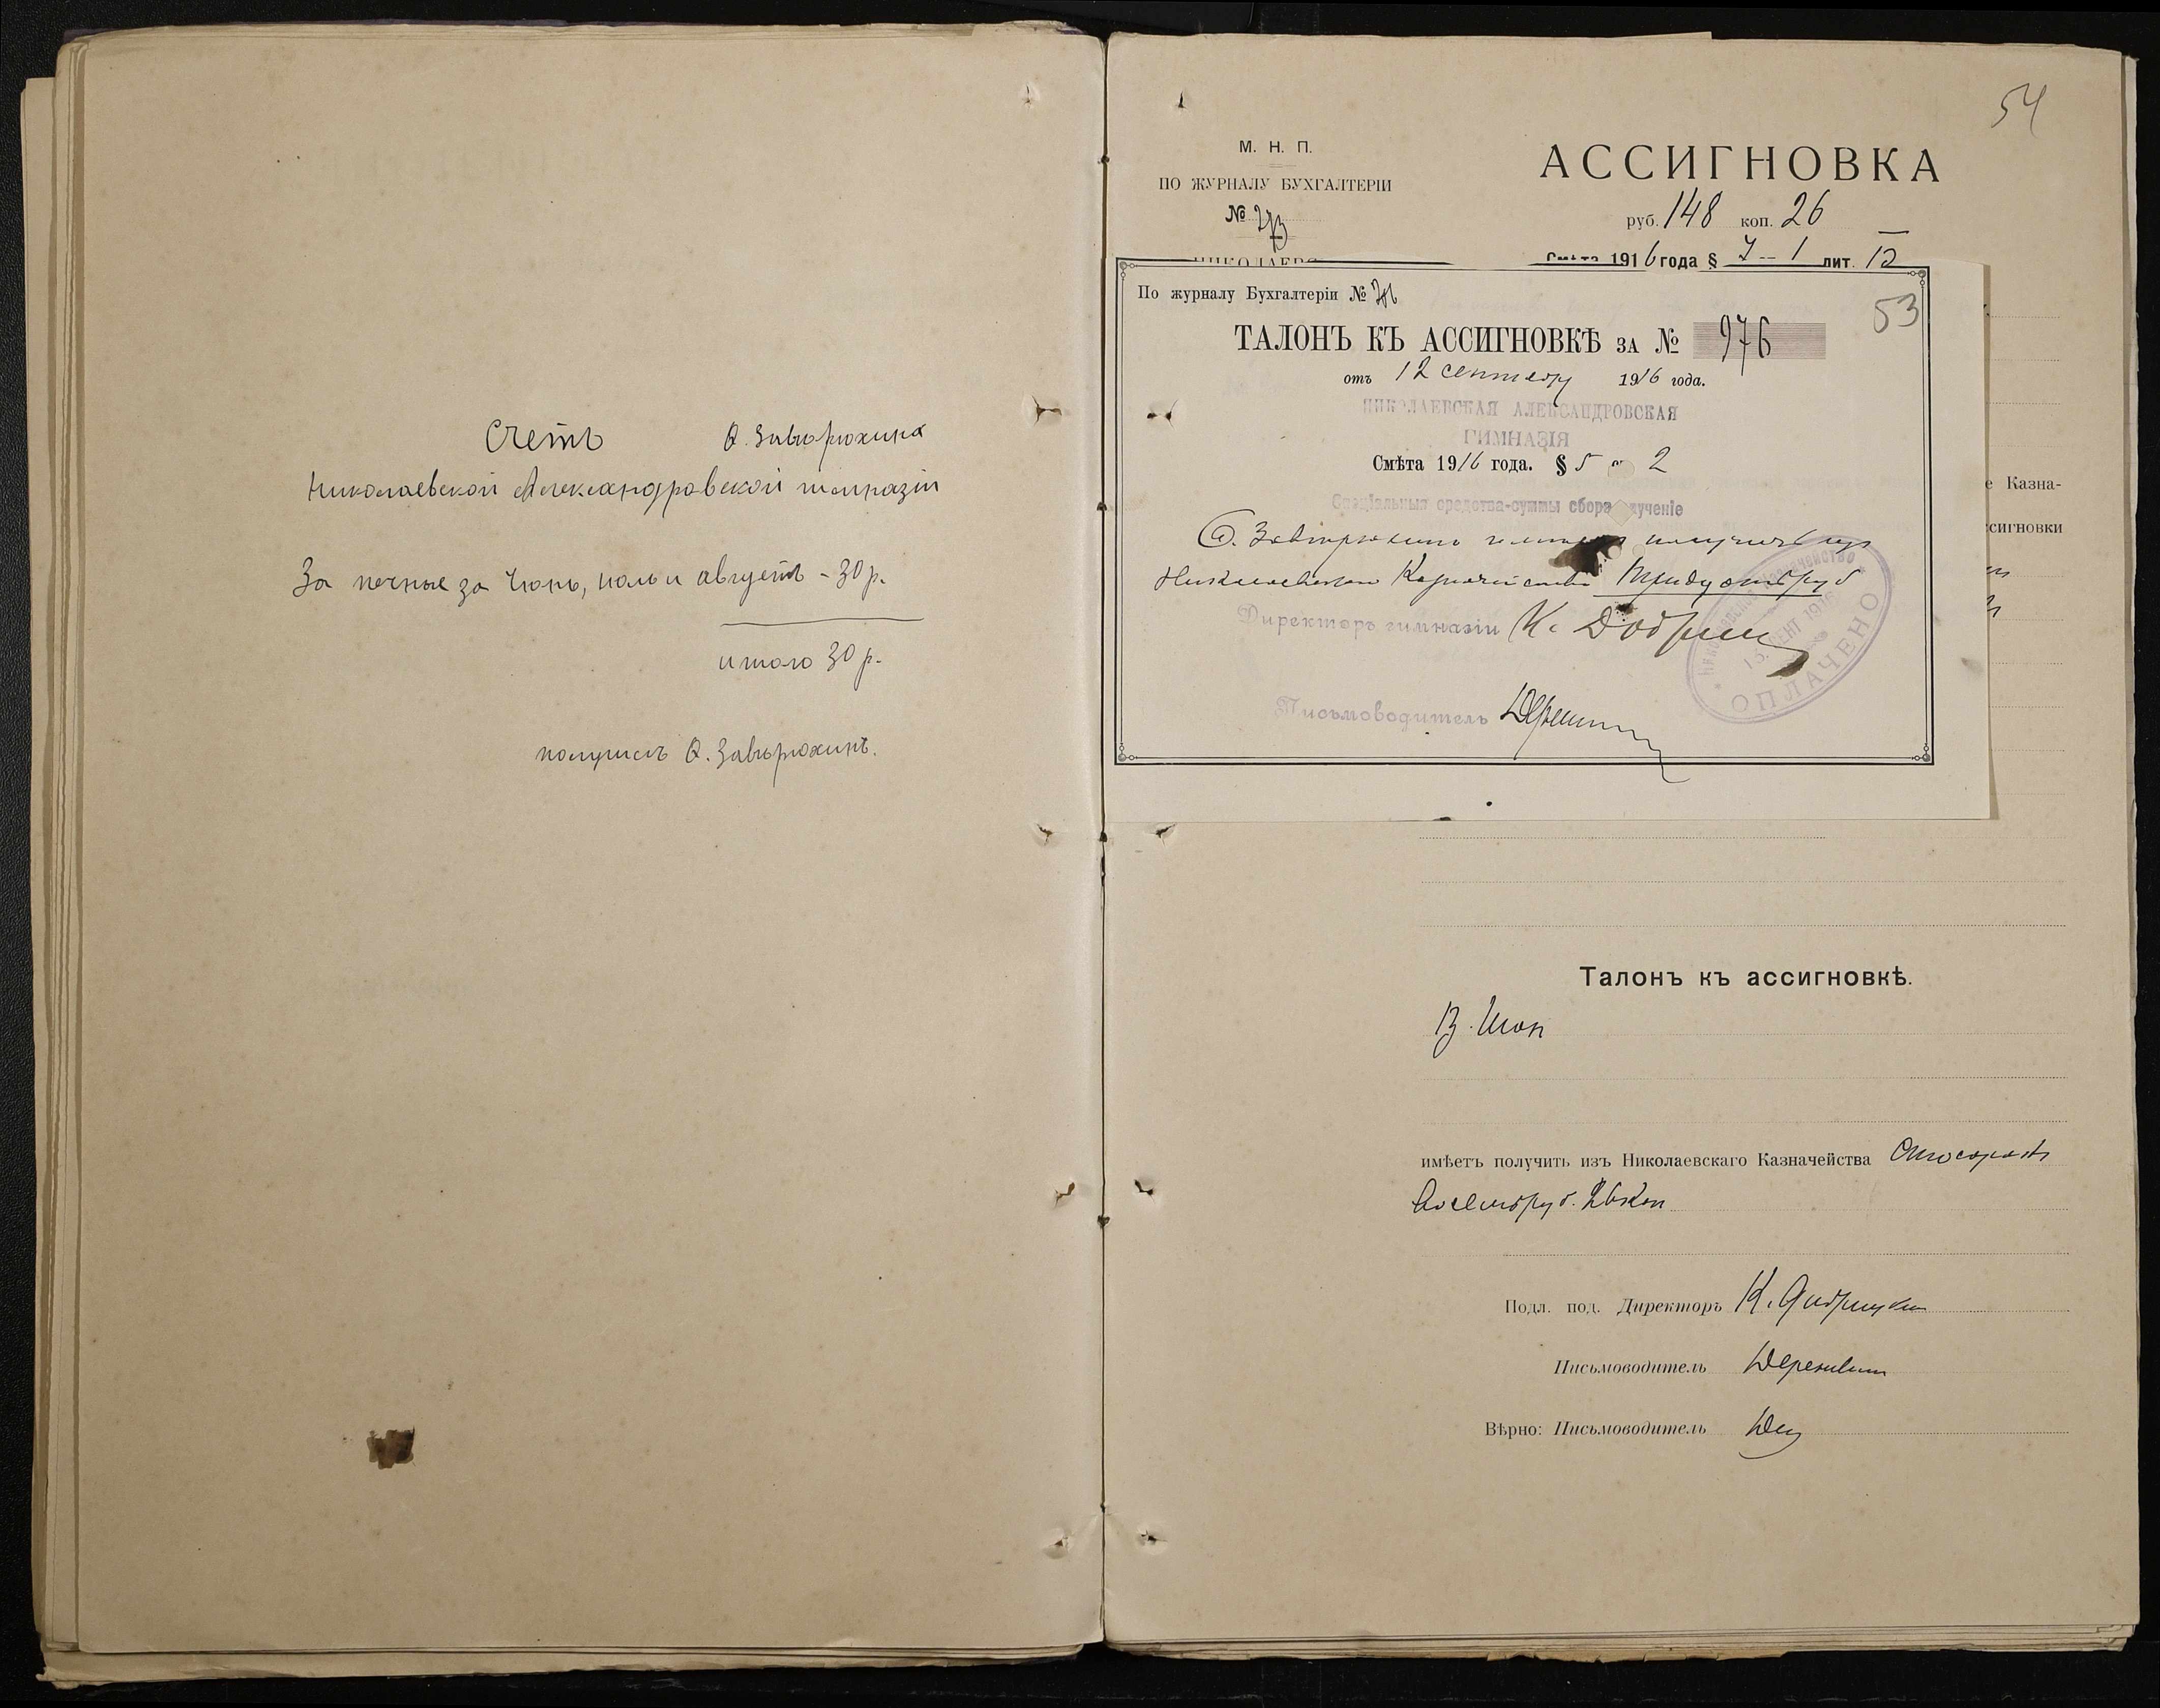 Счетъ Ѳ. Завьрюхина
Николаевской Александровской гимназіи
За печные за Іюнь, іюль и августъ - 30 р.
итого 30 р.
получилъ Ѳ. Завьрюхинъ.
54
М. Н. П.
ПО ЖУРНАЛУ БУХГАЛТЕРІИ
№
АССИГНОВКА
руб. 148 коп. 26
Смѣта 1916 года § 7 - 1 лит.
НИКОЛАЕВС
По журналу Бухгалтеріи №
53
ТАЛОНЪ КЪ АССИГНОВКѢ ЗА № 976
отъ 12 сентябр 1916 года.
НИКОЛАЕВСКАЯ АЛЕКСАНДРОВСКАЯ
ГИМНАЗІЯ
Смѣта 1916 года. § 5 ст 2
Спеціальныя средства-суммы сбора ученіе
Ѳ. Завьрюхинъ получить изъ
Николаевскаго Казначейства Тридцать руб
Директоръ гимназіи К.
Письмоводитель
КАЗНАЧЕЙСТВО
15 СЕНТ 1916
ОПЛАЧЕНО
е Казна-
ссигновки
Талонъ къ ассигновкѣ.
имѣетъ получить изъ Николаевскаго Казначейства Сто сорокъ
восемь руб. 26 коп
Подл. под. Директоръ К.
Письмоводитель
Вѣрно: Письмоводитель